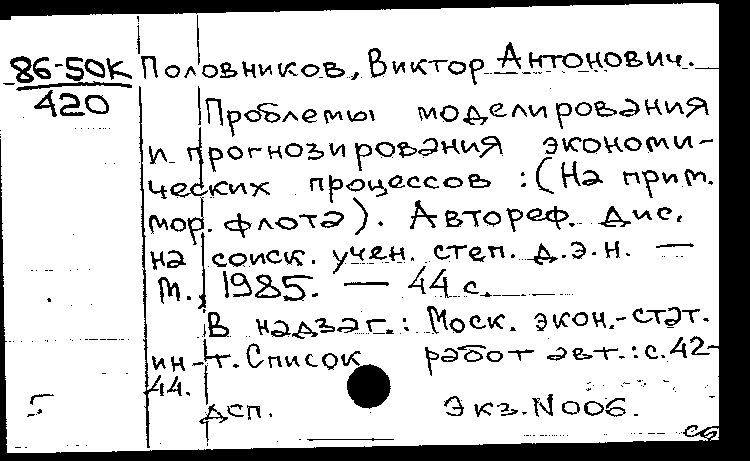 86-50К Половников, Виктор Антонович.
420
Проблемы моделирования
и прогнозирования экономи-
ческих процессов : (На прим.
мор. флота). Автореф. дис.
на соиск. учен. степ. д.э.н. —
М., 1985. — 44 с.
В надзаг.: Моск. экон.-стат.
ин-т. Список работ авт.: с. 42-
44.
ДСП. Экз. N006.